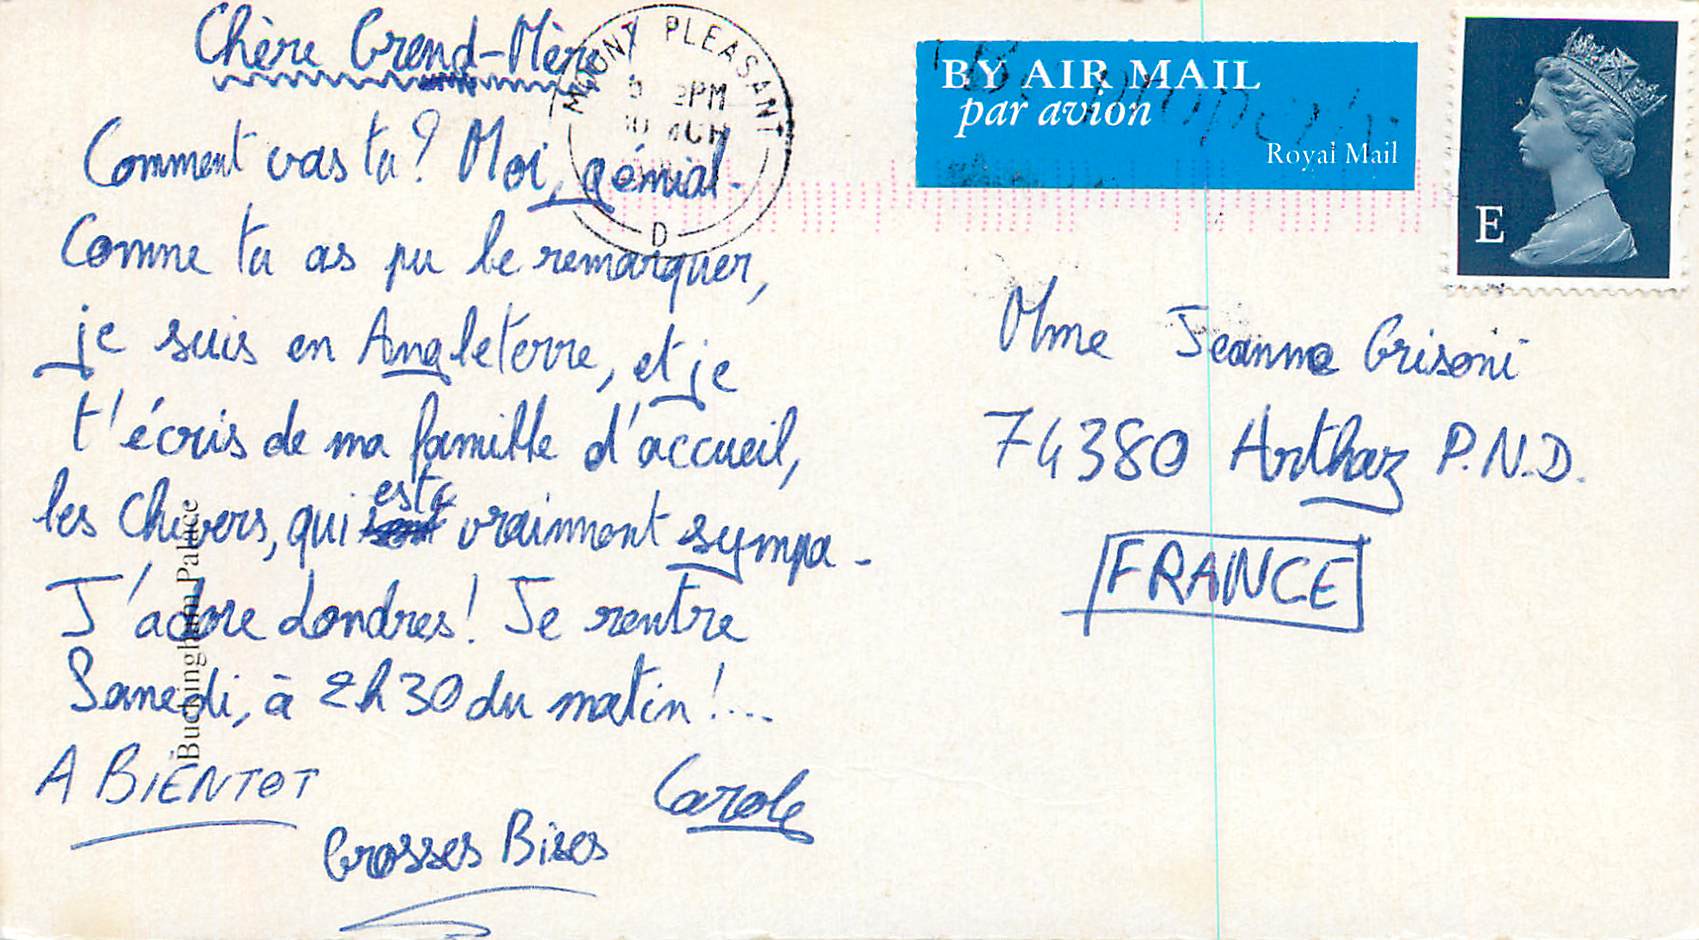 Chère Grand-Mère
Comment vas tu? Moi, génial.
Comme tu as pu le remarquer,
je suis en Angleterre, et je
t'écris de ma famille d'accueil,
les Chivers, qui est vrainment sympa.
J'adore Londres! Je rentre
Samedi, à 2h30 du matin!...
A BIENTOT
Carole
Grosses Bises
Buckingham Palace
MOUNT PLEASANT
PM
D
BY AIR MAIL
par avion
Royal Mail
E
Mme Jeanne Grisoni
74380 Arthaz P.N.D.
FRANCE